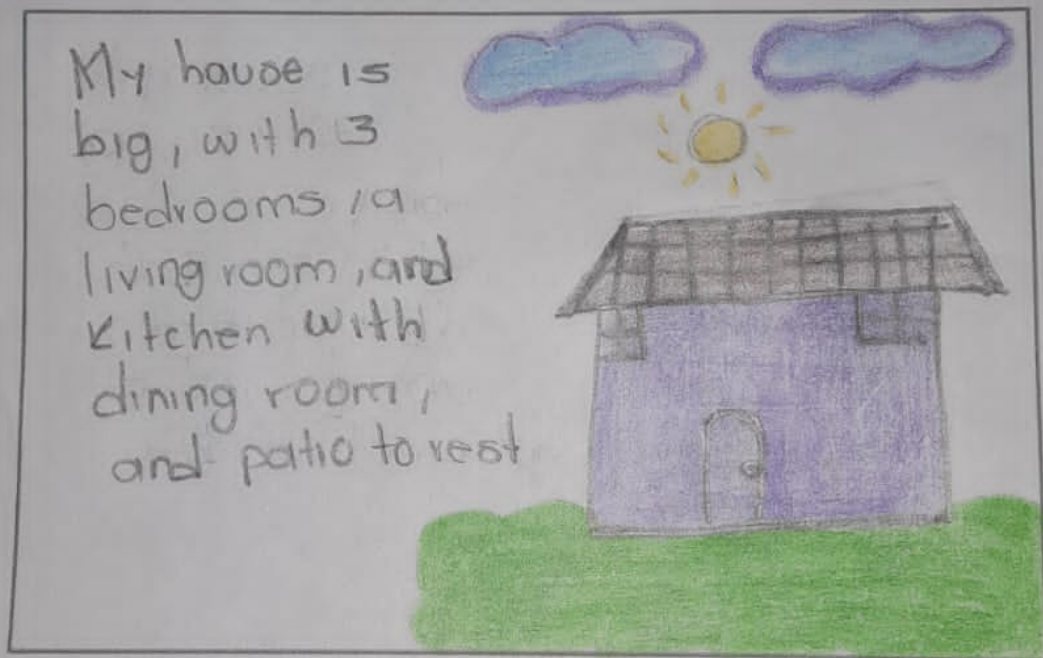 My house is
big, with 3
bedrooms, a
living room, and
kitchen with
dining room,
and patio to rest